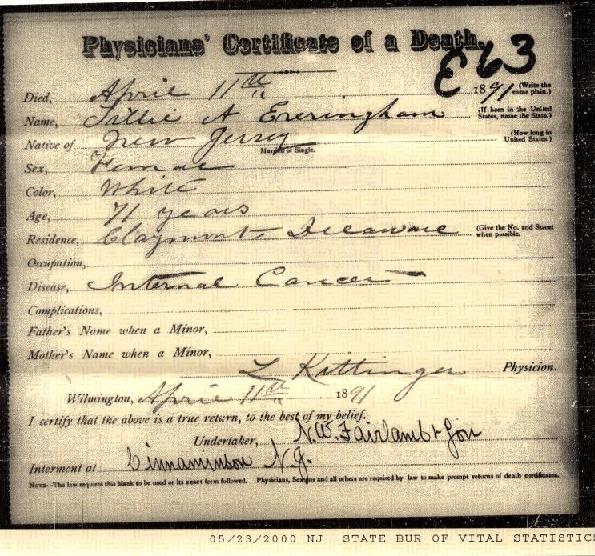 Physicians' Certificate of a Death.
E 63
Died, April 11th 1891 (Write the same plain.)
Name, Tillie A Everingham (If born in the United States, name the State.)
Native of New Jersey (How long in United States.)
Married or Single.
Sex, Female
Color, White
Age, 71 years
Residence, Claymont Delaware (Give the No. and Street when possible.)
Occupation,
Disease, Internal Cancer
Complications,
Father's Name when a Minor,
Mother's Name when a Minor,
L Kittinger Physician.
Wilmington, April 11th 1891
I certify that the above is a true return, to the best of my belief.
Undertaker, N.W. Fairlamb & Son
Interment at Cinnaminson N.J.
NOTE—The law requires this blank to be used or its exact form followed. Physicians, Sextons and all others are required by law to make prompt returns of death certificates.
05/23/2000 NJ STATE BUR OF VITAL STATISTICS